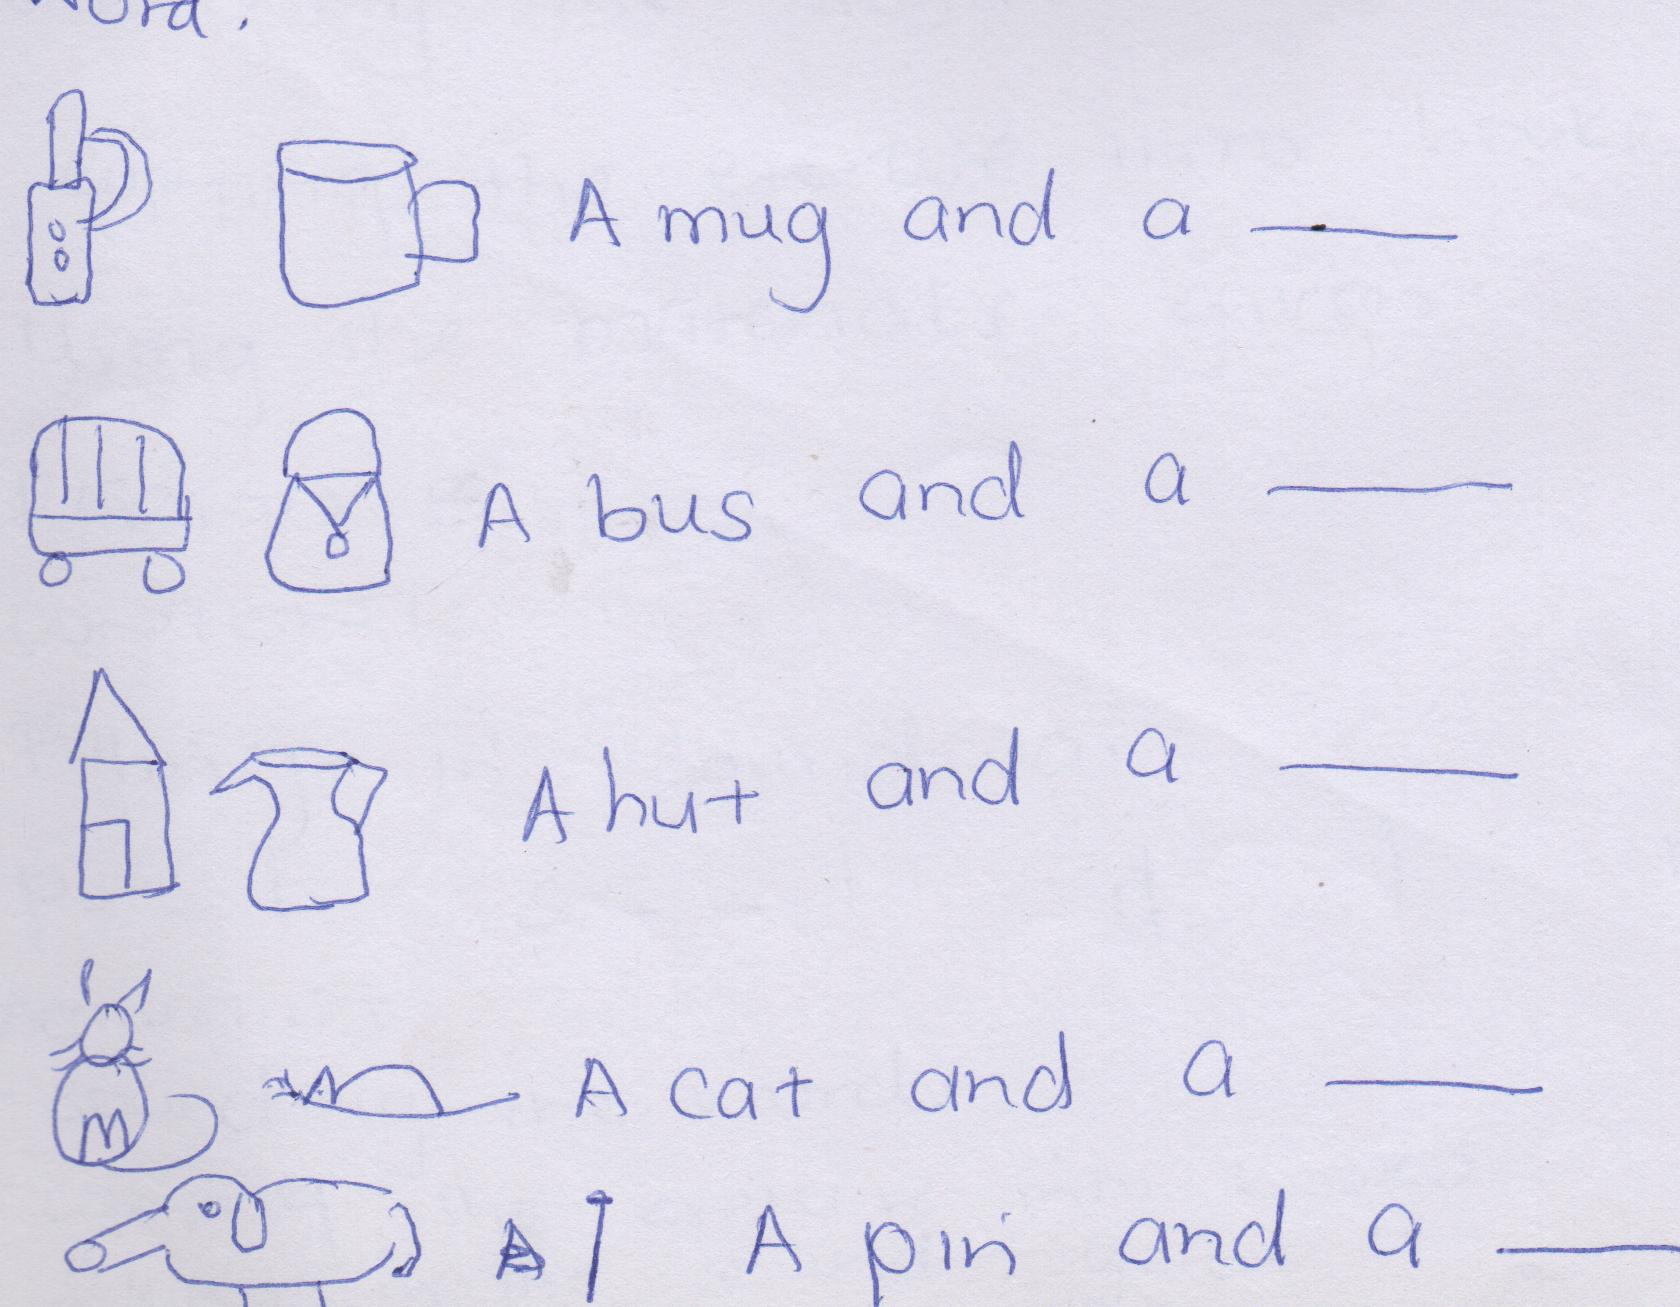 word.
A mug and a
A bus and a
A hut and a
A cat and a
A pin and a